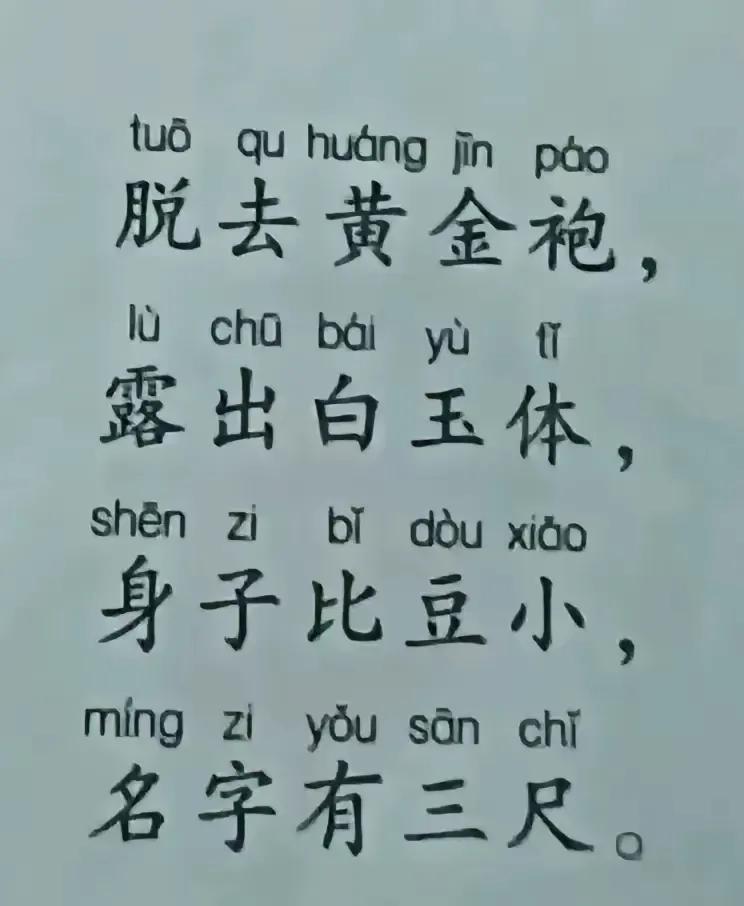 tuō qu huáng jīn páo
脱去黄金袍，
lù chū bái yù tǐ
露出白玉体，
shēn zi bǐ dòu xiǎo
身子比豆小，
míng zi yǒu sān chǐ
名字有三尺。